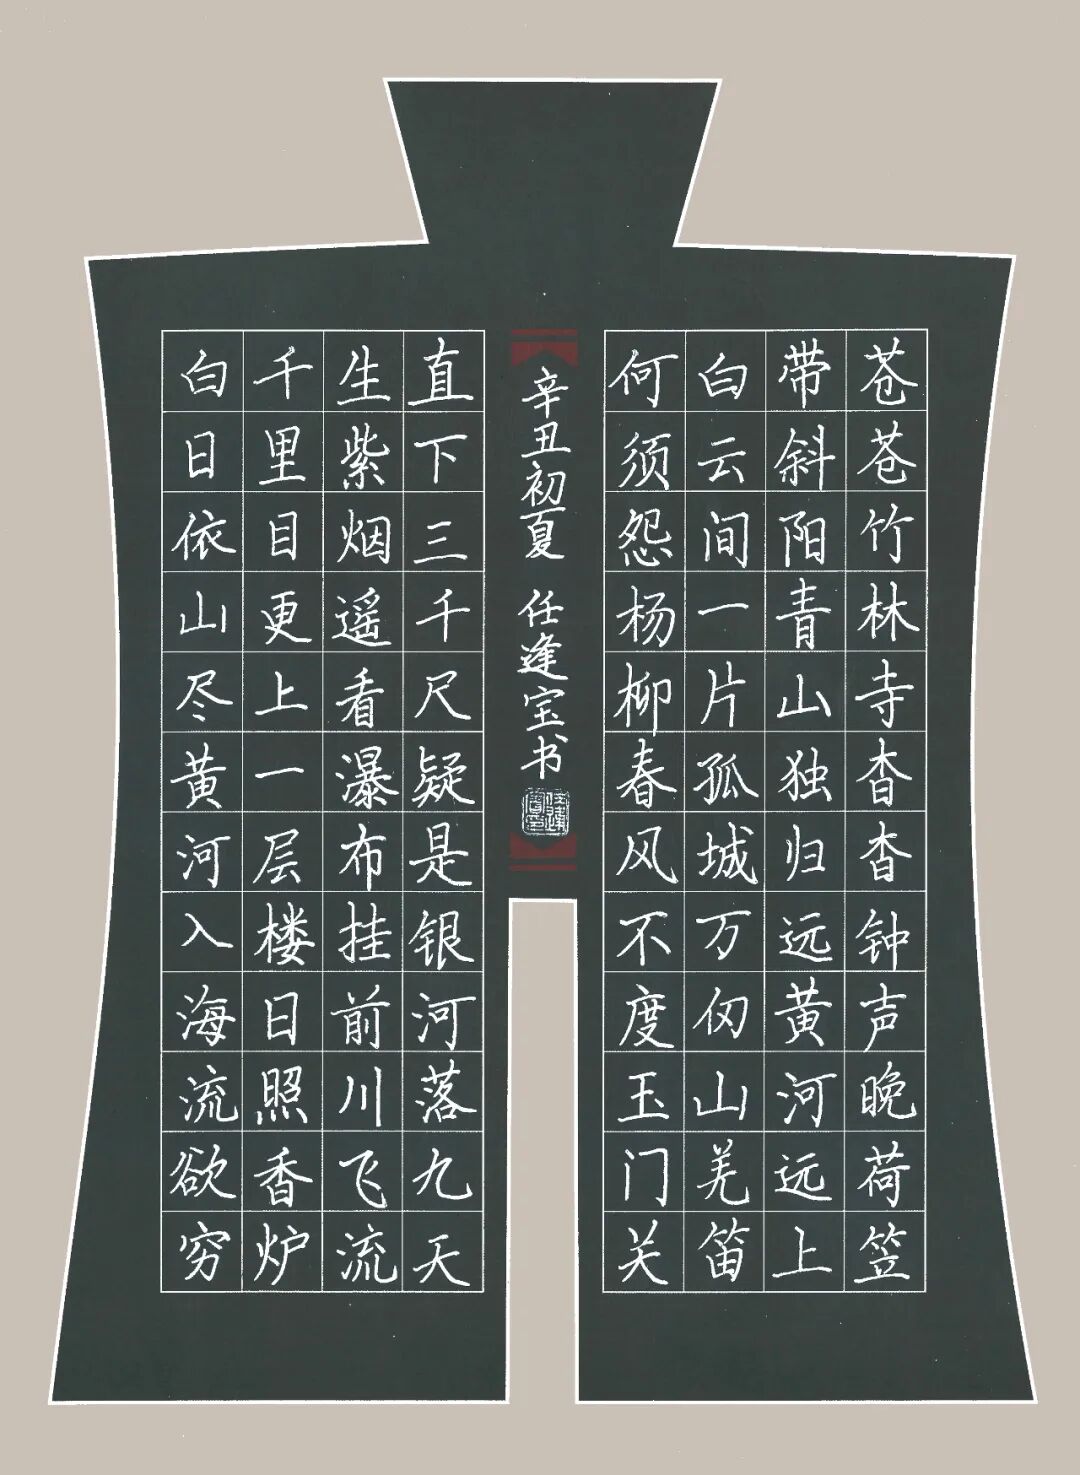 苍苍竹林寺杳杳钟声晚荷笠
带斜阳青山独归远黄河远上
白云间一片孤城万仞山羌笛
何须怨杨柳春风不度玉门关
白日依山尽黄河入海流欲穷
千里目更上一层楼日照香炉
生紫烟遥看瀑布挂前川飞流
直下三千尺疑是银河落九天
辛丑初夏 任逢宝书